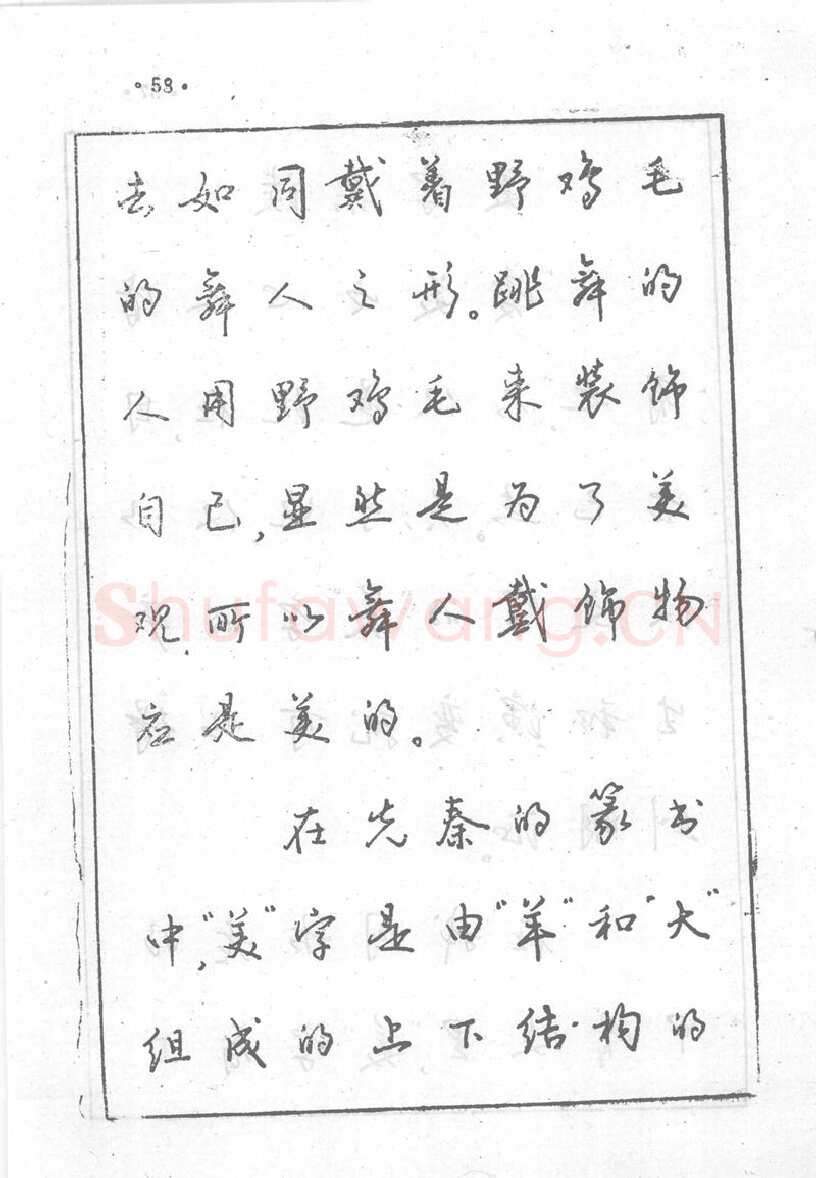 ·58·
去如同戴着野鸡毛
的舞人之形。跳舞的
人用野鸡毛来装饰
自己,显然是为了美
观.所以舞人戴饰物
应是美的。
在先秦的篆书
中,"美"字是由"羊"和"大"
组成的上下结构的
Shufawang.CN